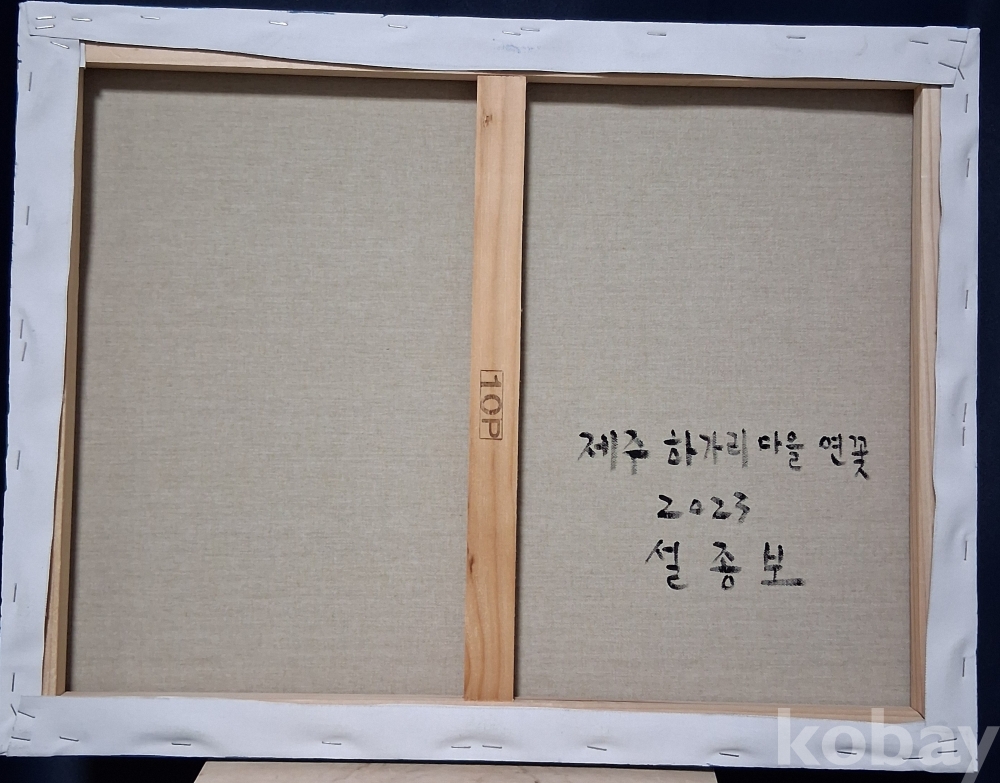 10P
제주 하가리 마을 연꽃
2023
설종보
kobay